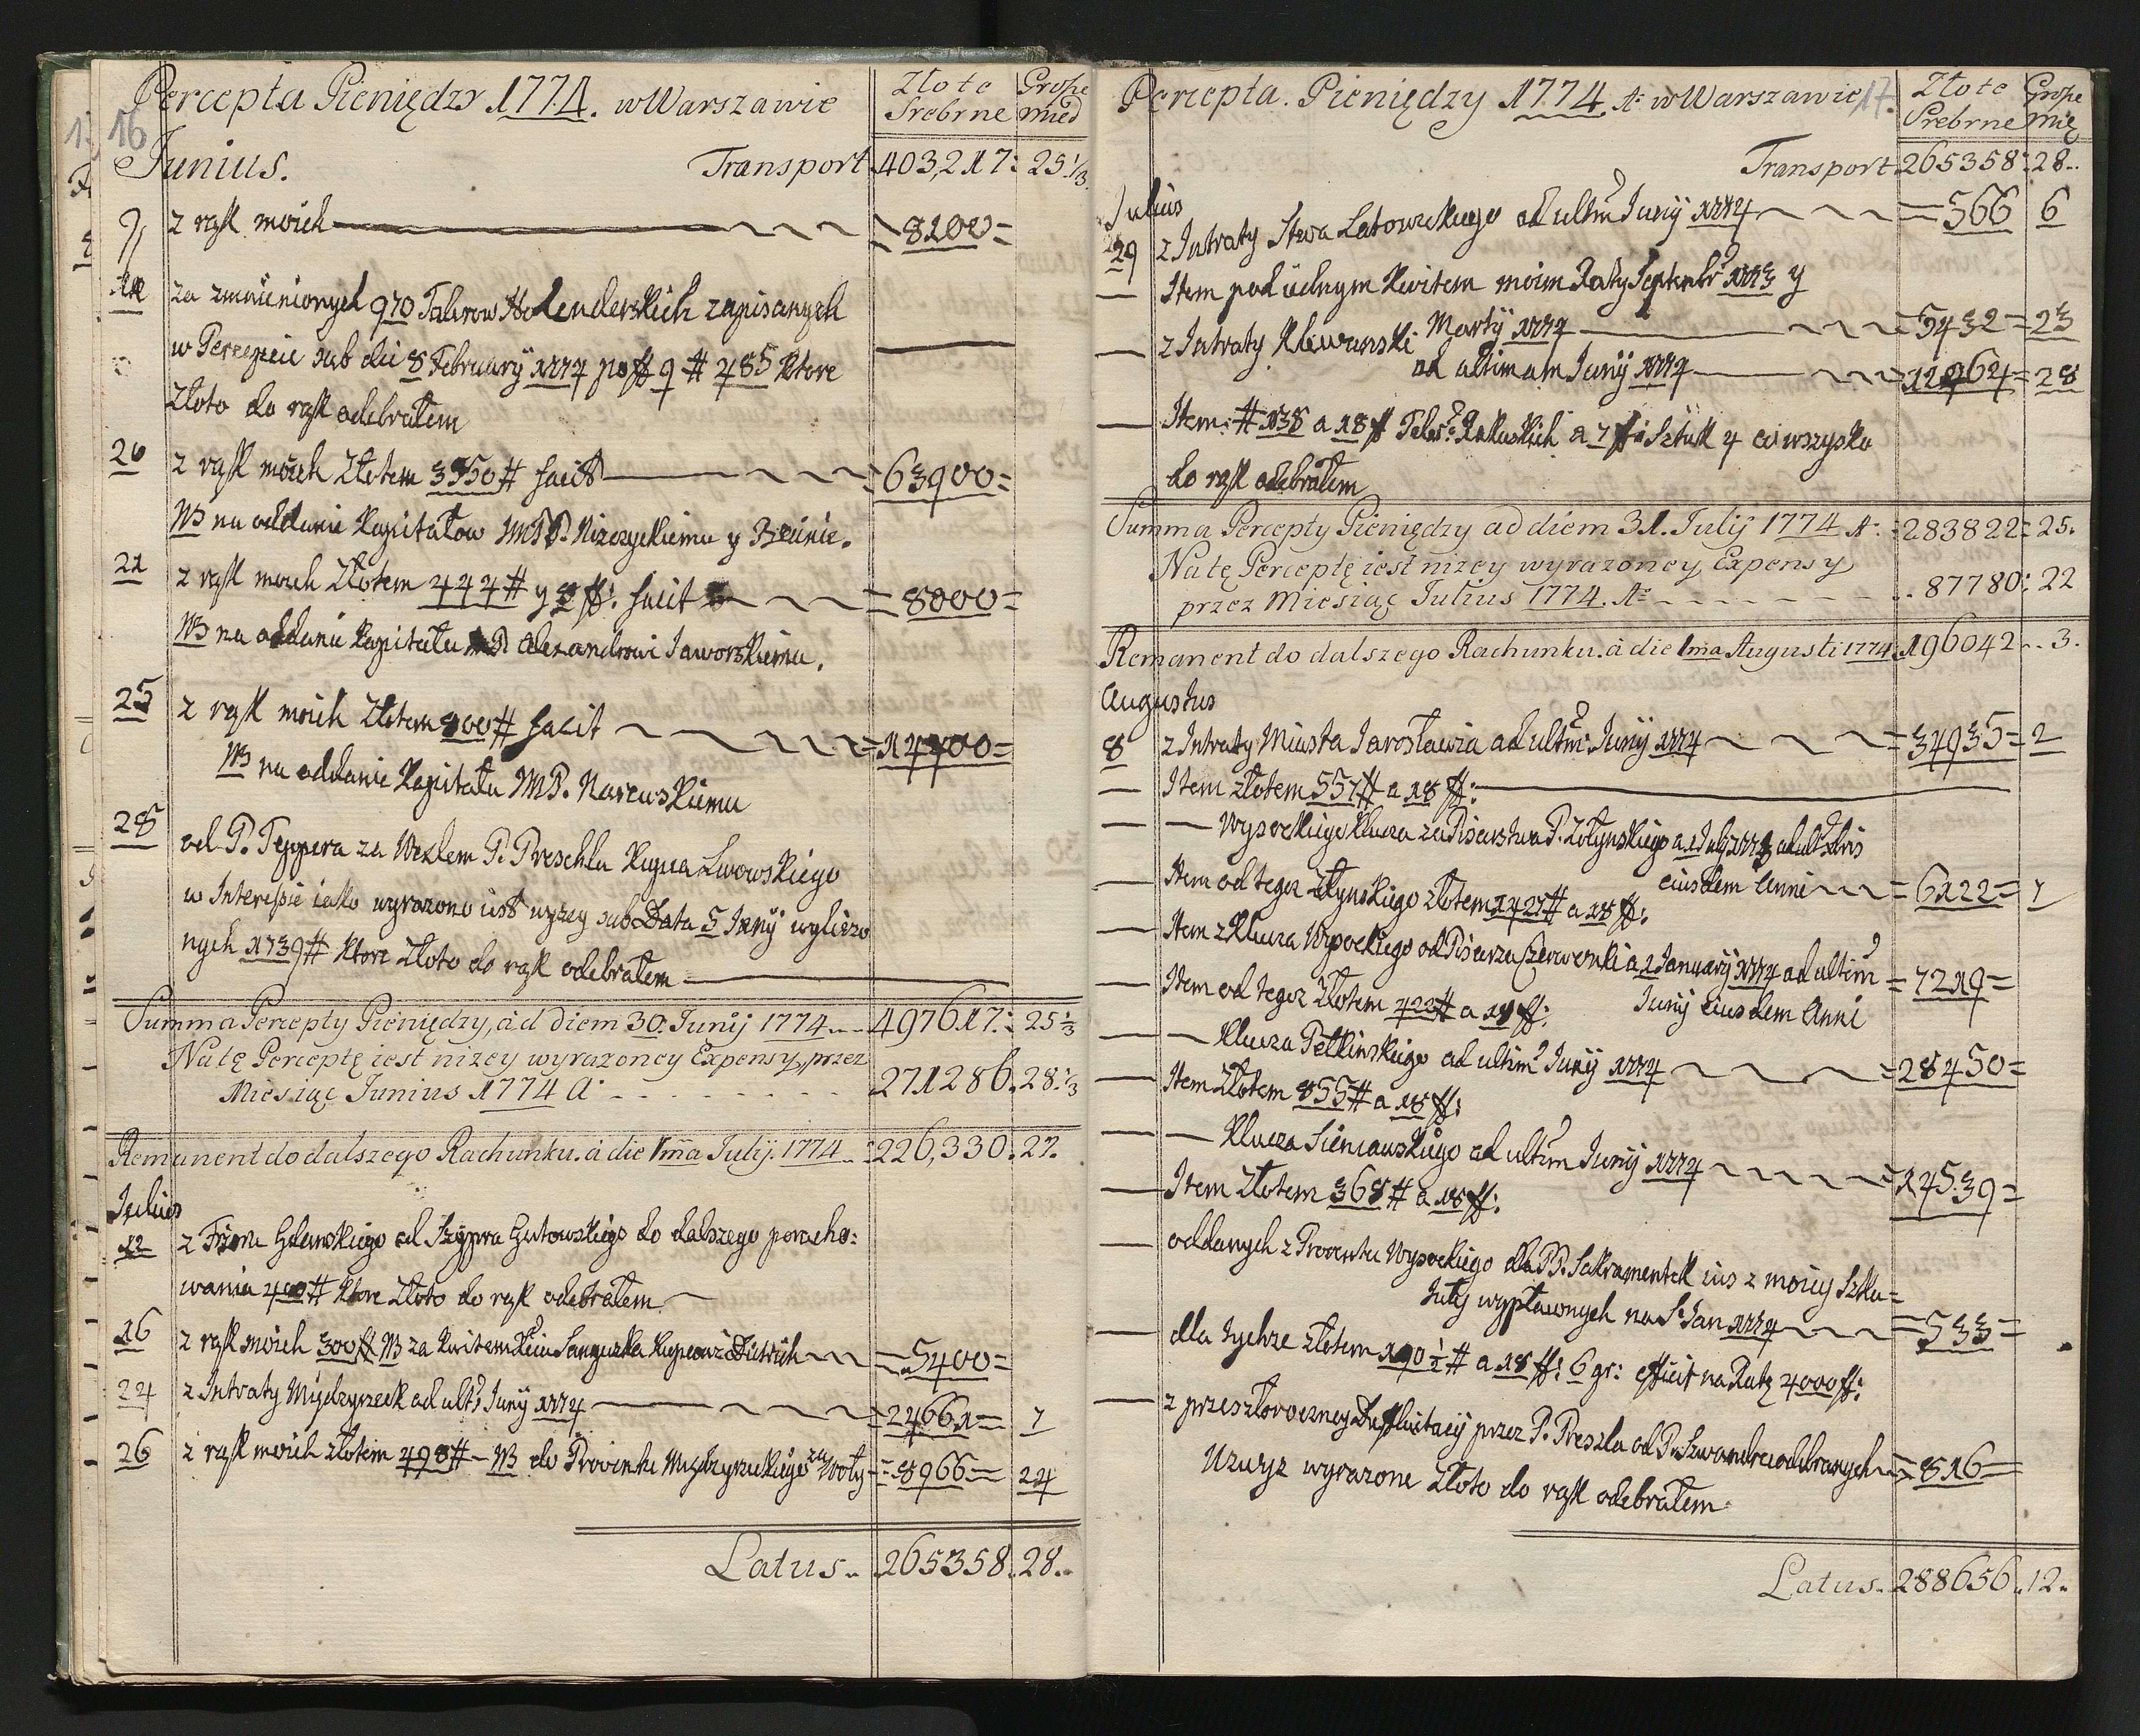 16
Percepta Pieniędzy 1774. w Warszawie
Złote Srebrne
Grosze mied
Junius.
Transport 403,217: 25 1/3
9 z rąk moich 8200=
za zmienionych 970 Talerow Hollenderskich zapisanych
w Percepcie sub die 8 February 1774 po ff 9 # 485 ktore
Złoto do rąk odebrałem
20 z rąk moich Złotem 3550 # facit =63900=
NB na oddanie Kapitałow
21 z rąk moich Złotem 444 # y 8 ff: facit =8000=
NB na oddanie Kapitału Alexandrowi Jaworskiemu.
25 z rąk moich Złotem 800 # facit =14400=
NB na oddanie Kapitału MP. Narcuskiemu
28 od P. Teppera za Wexlem P. Preschla Kupca Lwowskiego
w Interessie iako wyrazono iest wyzey sub Data 5 Juny wyliczo
nych 1739 # ktore Złoto do rąk odebrałem
Summa Percepty Pieniędzy, ad diem 30. Junij 1774 497617: 25 1/3
Na tę Perceptę iest nizey wyrazoney Expensy, przez
Miesiąc Junius 1774 A: 271286. 28. 1/3
Remanent do dalszego Rachunku. à die 1ma Julij. 1774 226,330. 27.
Julius
12 z Frior Gdanskiego od Szypra Gutowskiego do dalszego poracho:
wania 400 # ktore Złoto do rąk odebrałem
16 z rąk moich 300 ff NB za Kwitem Xcia Sanguszka =5400=
24 z Intraty Międzyrzeck ad ult: Juny 1774 =24661= 7
26 z rąk moich złotem 498 # NB do Prowentu Międzyrzeckiego za Woły =8966= 24
Latus. 265358. 28.
17.
Percepta. Pieniędzy 1774. A: w Warszawie
Złote Srebrne
Grosze mie
Transport 265358: 28.
Julius
29 z Intraty Stwa Latowickiego ad ultm Juny 1774 =566 6
Item pod iednym Kwitem moim Raty Septembr 1773 y
Marty 1774 =5432= 23
z Intraty Klewanski
ad ultimam Juny 1774 =12464= 28
Item: # 138 a 18 ff Taler: Rakuskich a 7 ff: Sztuk 4 co wszysko
do rąk odebrałem
Summa Percepty Pieniędzy ad diem 31. Julij 1774 A: :283822: 25.
Na tę Perceptę iest nizey wyrazoney Expensy
przez Miesiąc Julius 1774. A: 87780: 22
Remanent do dalszego Rachunku. à die 1ma Augusti 1774. 196042. 3.
Augustus
8 z Intraty Miasta Jarosławia ad ultm: Juny 1774 =34935= 2
Item złotem 557 # a 18 ff:
Wysockiego Klucza za Pisarstwa P. Zołynskiego a 1 July 1773 ad ult Xbris
eiusdem Anni =6122= 7
Item od tegoz Zołynskiego złotem # a 18 ff:
Item z Klucza Wysockiego od Pisarza Czerwonki a 1 January 1774 ad ultim
Juny eiusdem Anni =7219=
Item od tegoz Złotem 422 # a 18 ff:
Klucza Pełkinskiego ad ultim Juny 1774 =28450=
Item Złotem 855 # a 18 ff:
Klucza Sieniawskiego ad ultim Juny 1774 =14539=
Item Złotem 368 # a 18 ff:
oddanych z Prowentu Wysockiego dla PP. Sakramentek ius z moiey Szka=
tuły wypłaconych na S. Jan 1774 =533=
dla tychze złotem 190 1/2 # a 18 ff: 6 gr: efficit na Ratę 4000 ff:
z przeszłoroczney przez P. Preszla od P. odebranych =816=
Uzwyz wyrazone Złoto do rąk odebrałem
Latus. 288656. 12.